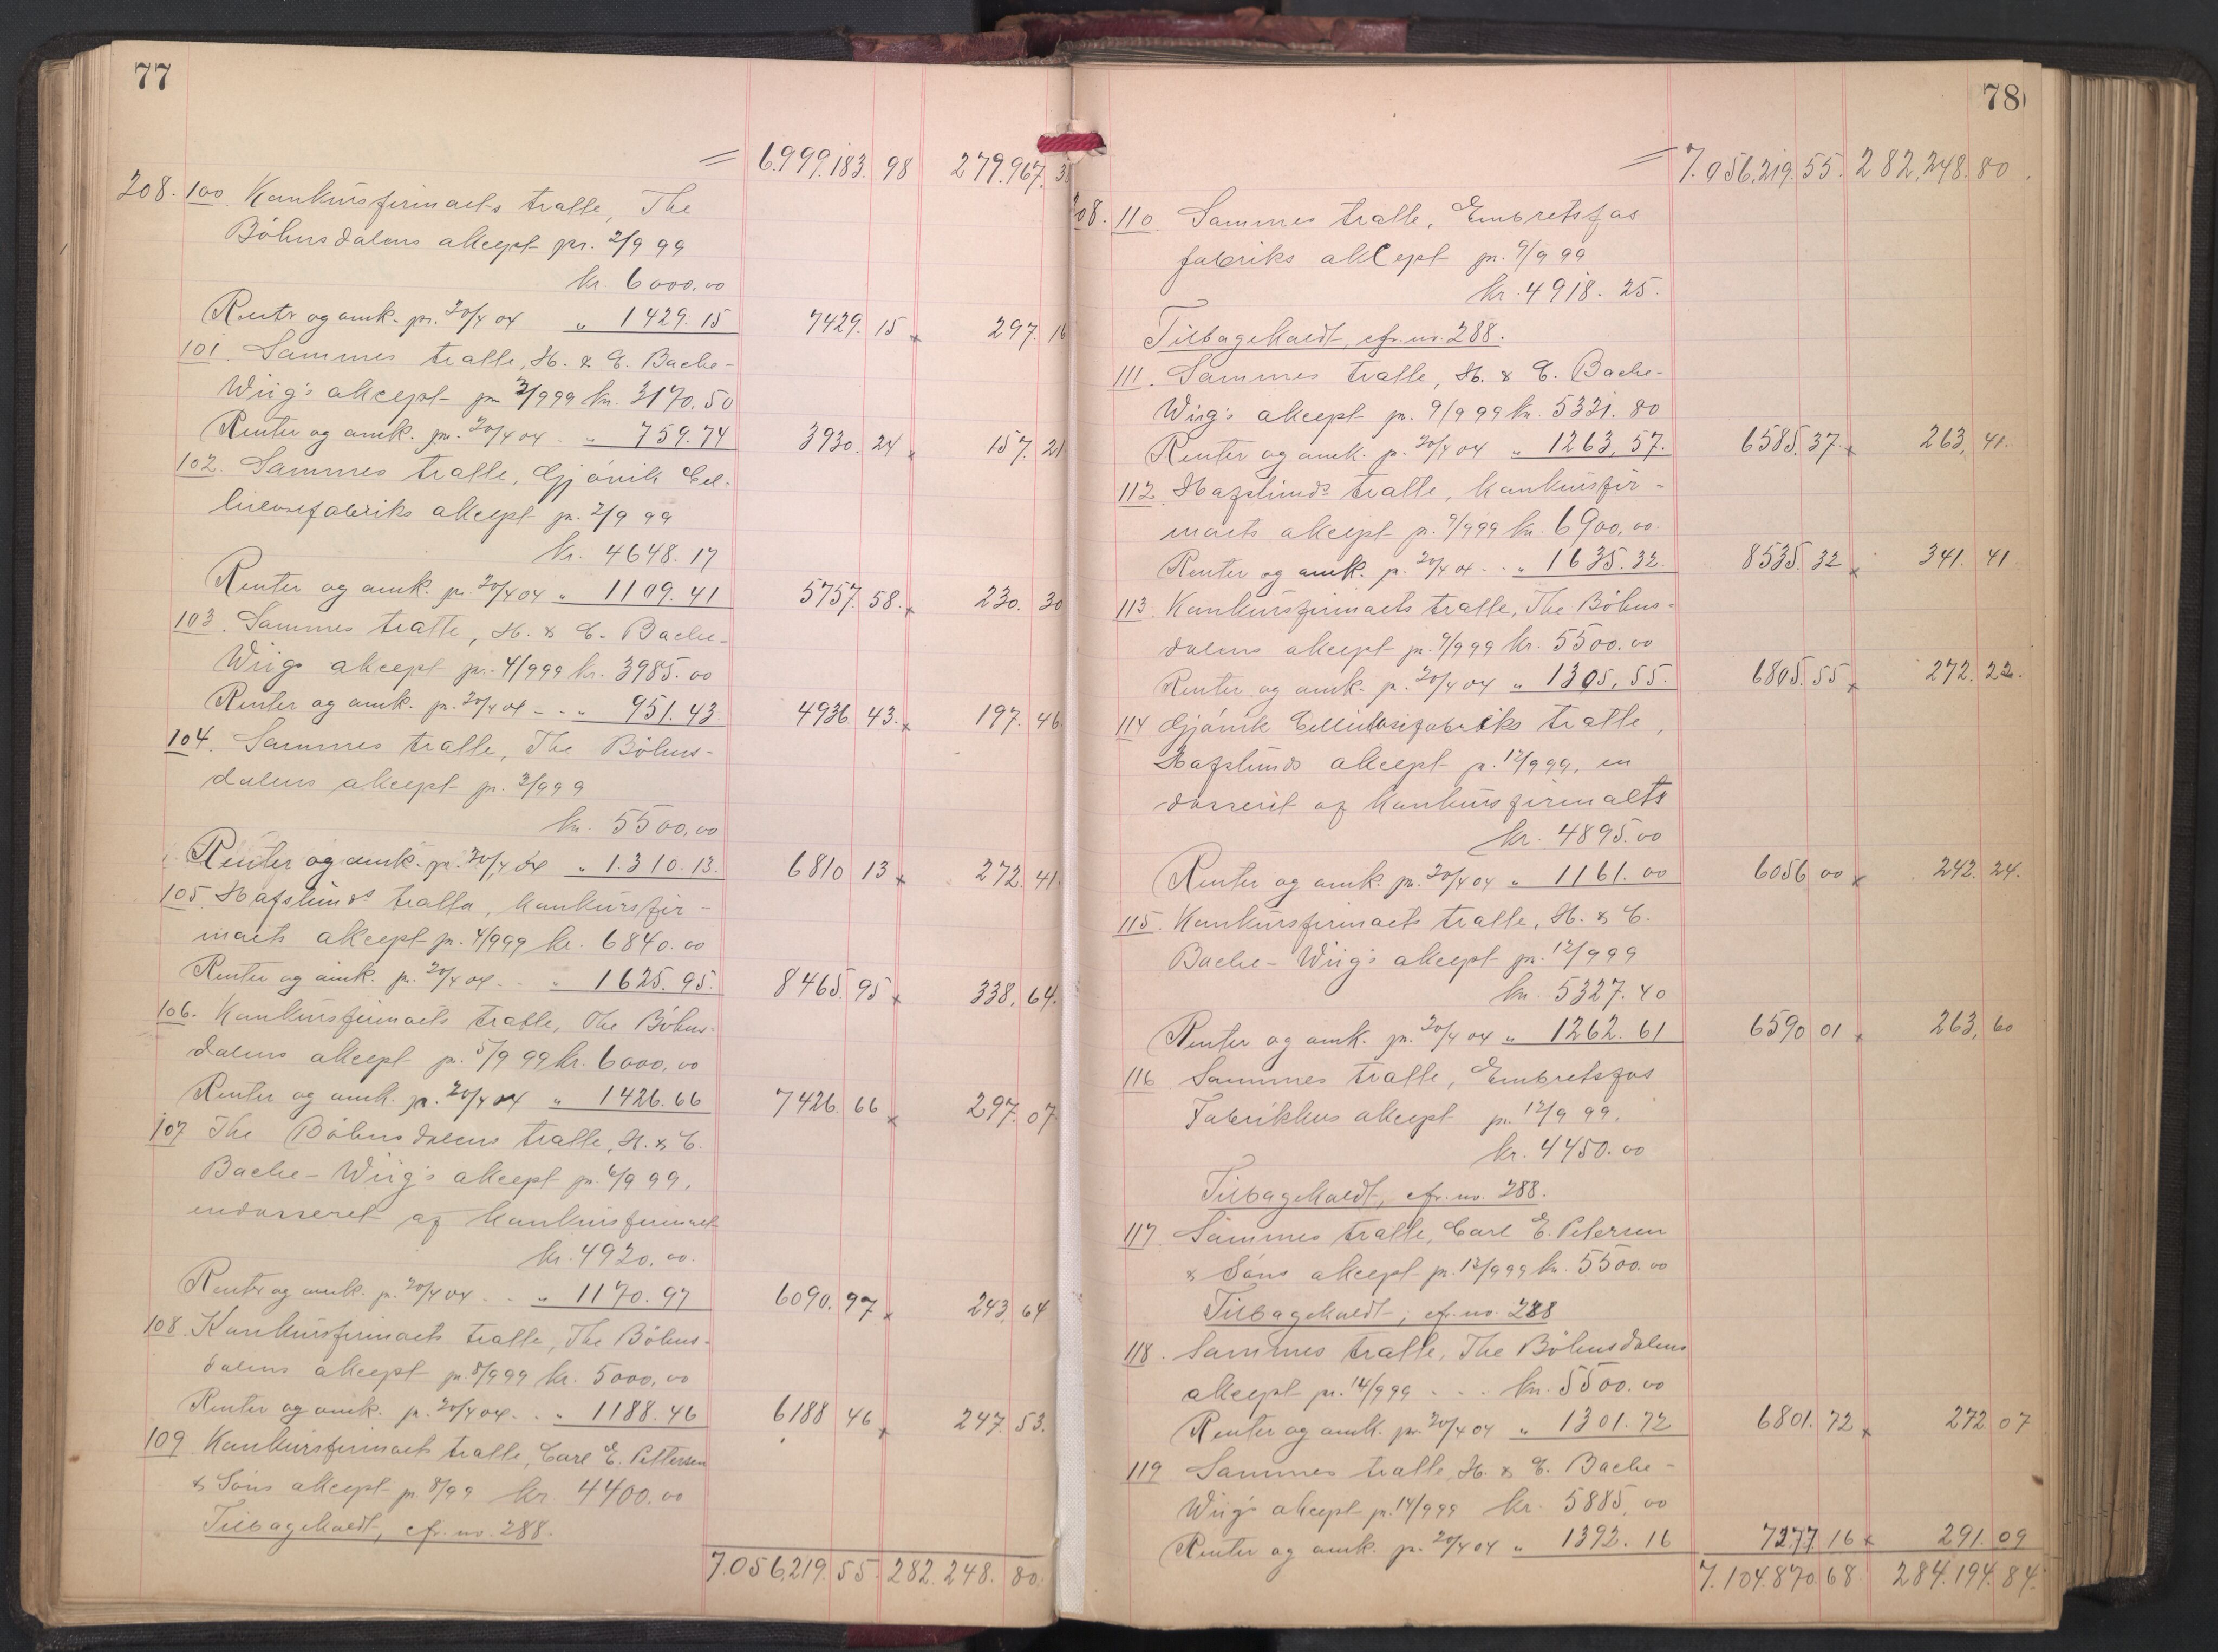 77
= 6.999.183. 98 279.967. 38
208. 100. Konkursfirmaets tratte, The
Böhnsdalens akcept pr. 2/9 99
kr. 6000.00
Renter og omk. pr. 20/4 04 " 1429.15 7429. 15 x 297. 16
101. Sammes tratte, H. & C. Bache-
Wiig's akcept pr. 2/9 99 kr. 3170.50
Renter og omk. pr. 20/4 04 - " 759.74 3930. 24 x 157. 21
102. Sammes tratte, Gjövik Cel-
lulosefabriks akcept pr. 2/9 99
kr. 4648.17
Renter og omk. pr. 20/4 04 " 1109.41 5757. 58. x 230. 30
103. Sammes tratte, H. & C. Bache-
Wiigs akcept pr. 4/9 99 kr. 3985.00
Renter og omk. pr. 20/4 04 - - " 951.43 4936. 43. x 197. 46
104. Sammes tratte, The Böhns-
dalens akcept pr. 3/9 99
kr. 5500.00
Renter og omk. pr. 20/4 04 " 1.310.13. 6810 13 x 272. 41.
105 Hafslunds tratta, konkursfir-
maets akcept pr. 4/9 99 kr. 6840.00
Renter og omk. pr. 20/4 04 - - " 1625.95. 8465. 95 x 338. 64.
106. Konkursfirmaets tratte, The Böhns-
dalens akcept pr. 5/9 99 kr. 6000.00
Renter og omk. pr. 20/4 04 " 1426.66 7426. 66 x 297. 07.
107 The Böhnsdalens tratte, H. & C.
Bache-Wiig's akcept pr. 6/9 99,
endosseret af konkursfirmaet
kr. 4920.00.
Renter og omk. pr. 20/4 04 - - " 1170.97 6090. 97 x 243. 64
108 Konkursfirmaets tratte, The Böhns-
dalens akcept pr. 8/9 99 kr. 5000.00
Renter og omk. pr. 20/4 04. - - " 1188.46 6188 46 x 247. 53.
109 Konkursfirmaets tratte, Carl E. Pettersen
& Söns akcept pr. 8/99 kr. 4400.00
Tilbagekaldt, cfr. no. 288.
7.056.219. 55. 282.248. 80.
78
= 7.056.219. 55. 282,248. 80.
208. 110. Sammes tratte, Embretsfos
fabriks akcept pr. 9/9 99
kr. 4918.25.
Tilbagekaldt, cfr. no. 288.
111. Sammes tratte, H. & C. Bache-
Wiig's akcept pr. 9/9 99 kr. 5321.80
Renter og omk. pr. 20/4 04 " 1263,57. 6585. 37. x 263, 41.
112. Hafslunds tratte, konkursfir-
maets akcept pr. 9/9 99 kr. 6900,00.
Renter og omk. pr. 20/4 04 - - " 1635.32. 8535. 32 x 341. 41
113. Konkursfirmaets tratte, The Böhns-
dalens akcept pr. 9/9 99 kr. 5500.00
Renter og omk. pr. 20/4 04 " 1305,55. 6805. 55 x 272. 22.
114 Gjövik Cellulosefabriks tratte,
Hafslunds akcept pr. 12/9 99, en
dosserit af konkursfirmaets
kr. 4895.00
Renter og omk. pr. 20/4 04 " 1161.00 6056 00 x 242. 24.
115. Konkursfirmaets tratte, H. & C.
Bache-Wiig's akcept pr. 12/9 99
kr. 5327.40
Renter og omk. pr. 20/4 04 " 1262.61 6590 01 x 263, 60
116 Sammes tratte, Embretsfos
Fabrikkers akcept pr. 12/9 99.
kr. 4450.00
Tilbagekaldt, cfr. no. 288.
117. Sammes tratte, Carl E. Petersen
& Söns akcept pr. 13/9 99 kr. 5500.00
Tilbagekaldt, cfr. no. 288
118. Sammes tratte, The Böhnsdalens
akcept pr. 14/9 99 - - . kr. 5500.00
Renter og omk. pr. 20/4 04 " 1301.72 6801. 72 x 272 07
119 Sammes tratte, H. & C. Bache-
Wiig's akcept pr. 14/9 99 kr. 5885,00
Renter og omk. pr. 20/4 04 " 1392.16 7277. 16 x 291. 09
7.104.870. 68. 284.194. 84.